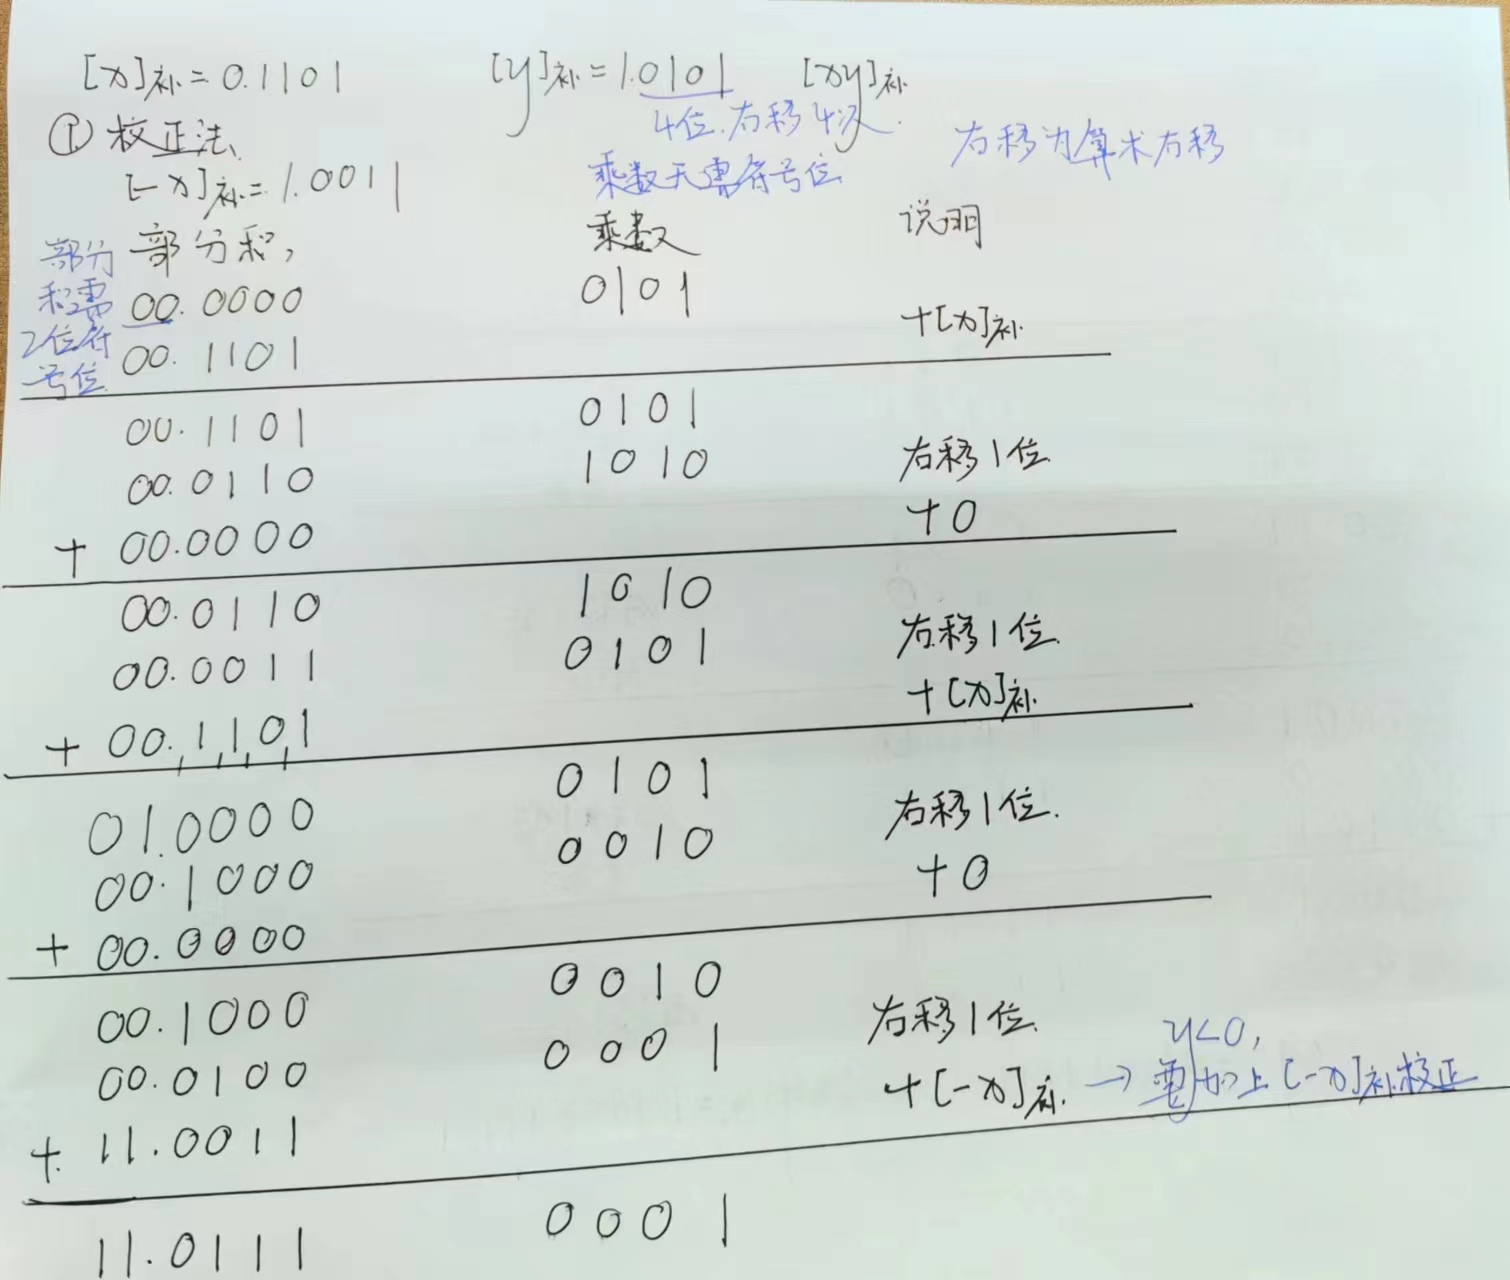 [x]补=0.1101 [y]补=1.0101 [xy]补
4位.右移4次.
① 校正法 右移为算术右移
[-x]补=1.0011 乘数无需符号位
部分积, 乘数 说明
部分积需2位符号位
00.0000 0101
00.1101 +[x]补
00.1101 0101
00.0110 1010 右移1位
+ 00.0000 +0
00.0110 1010
00.0011 0101 右移1位
+ 00.1101 +[x]补
01.0000 0101
00.1000 0010 右移1位.
+ 00.0000 +0
00.1000 0010
00.0100 0001 右移1位 y<0,
+ 11.0011 +[-x]补 → 需加上[-x]补校正
11.0111 0001